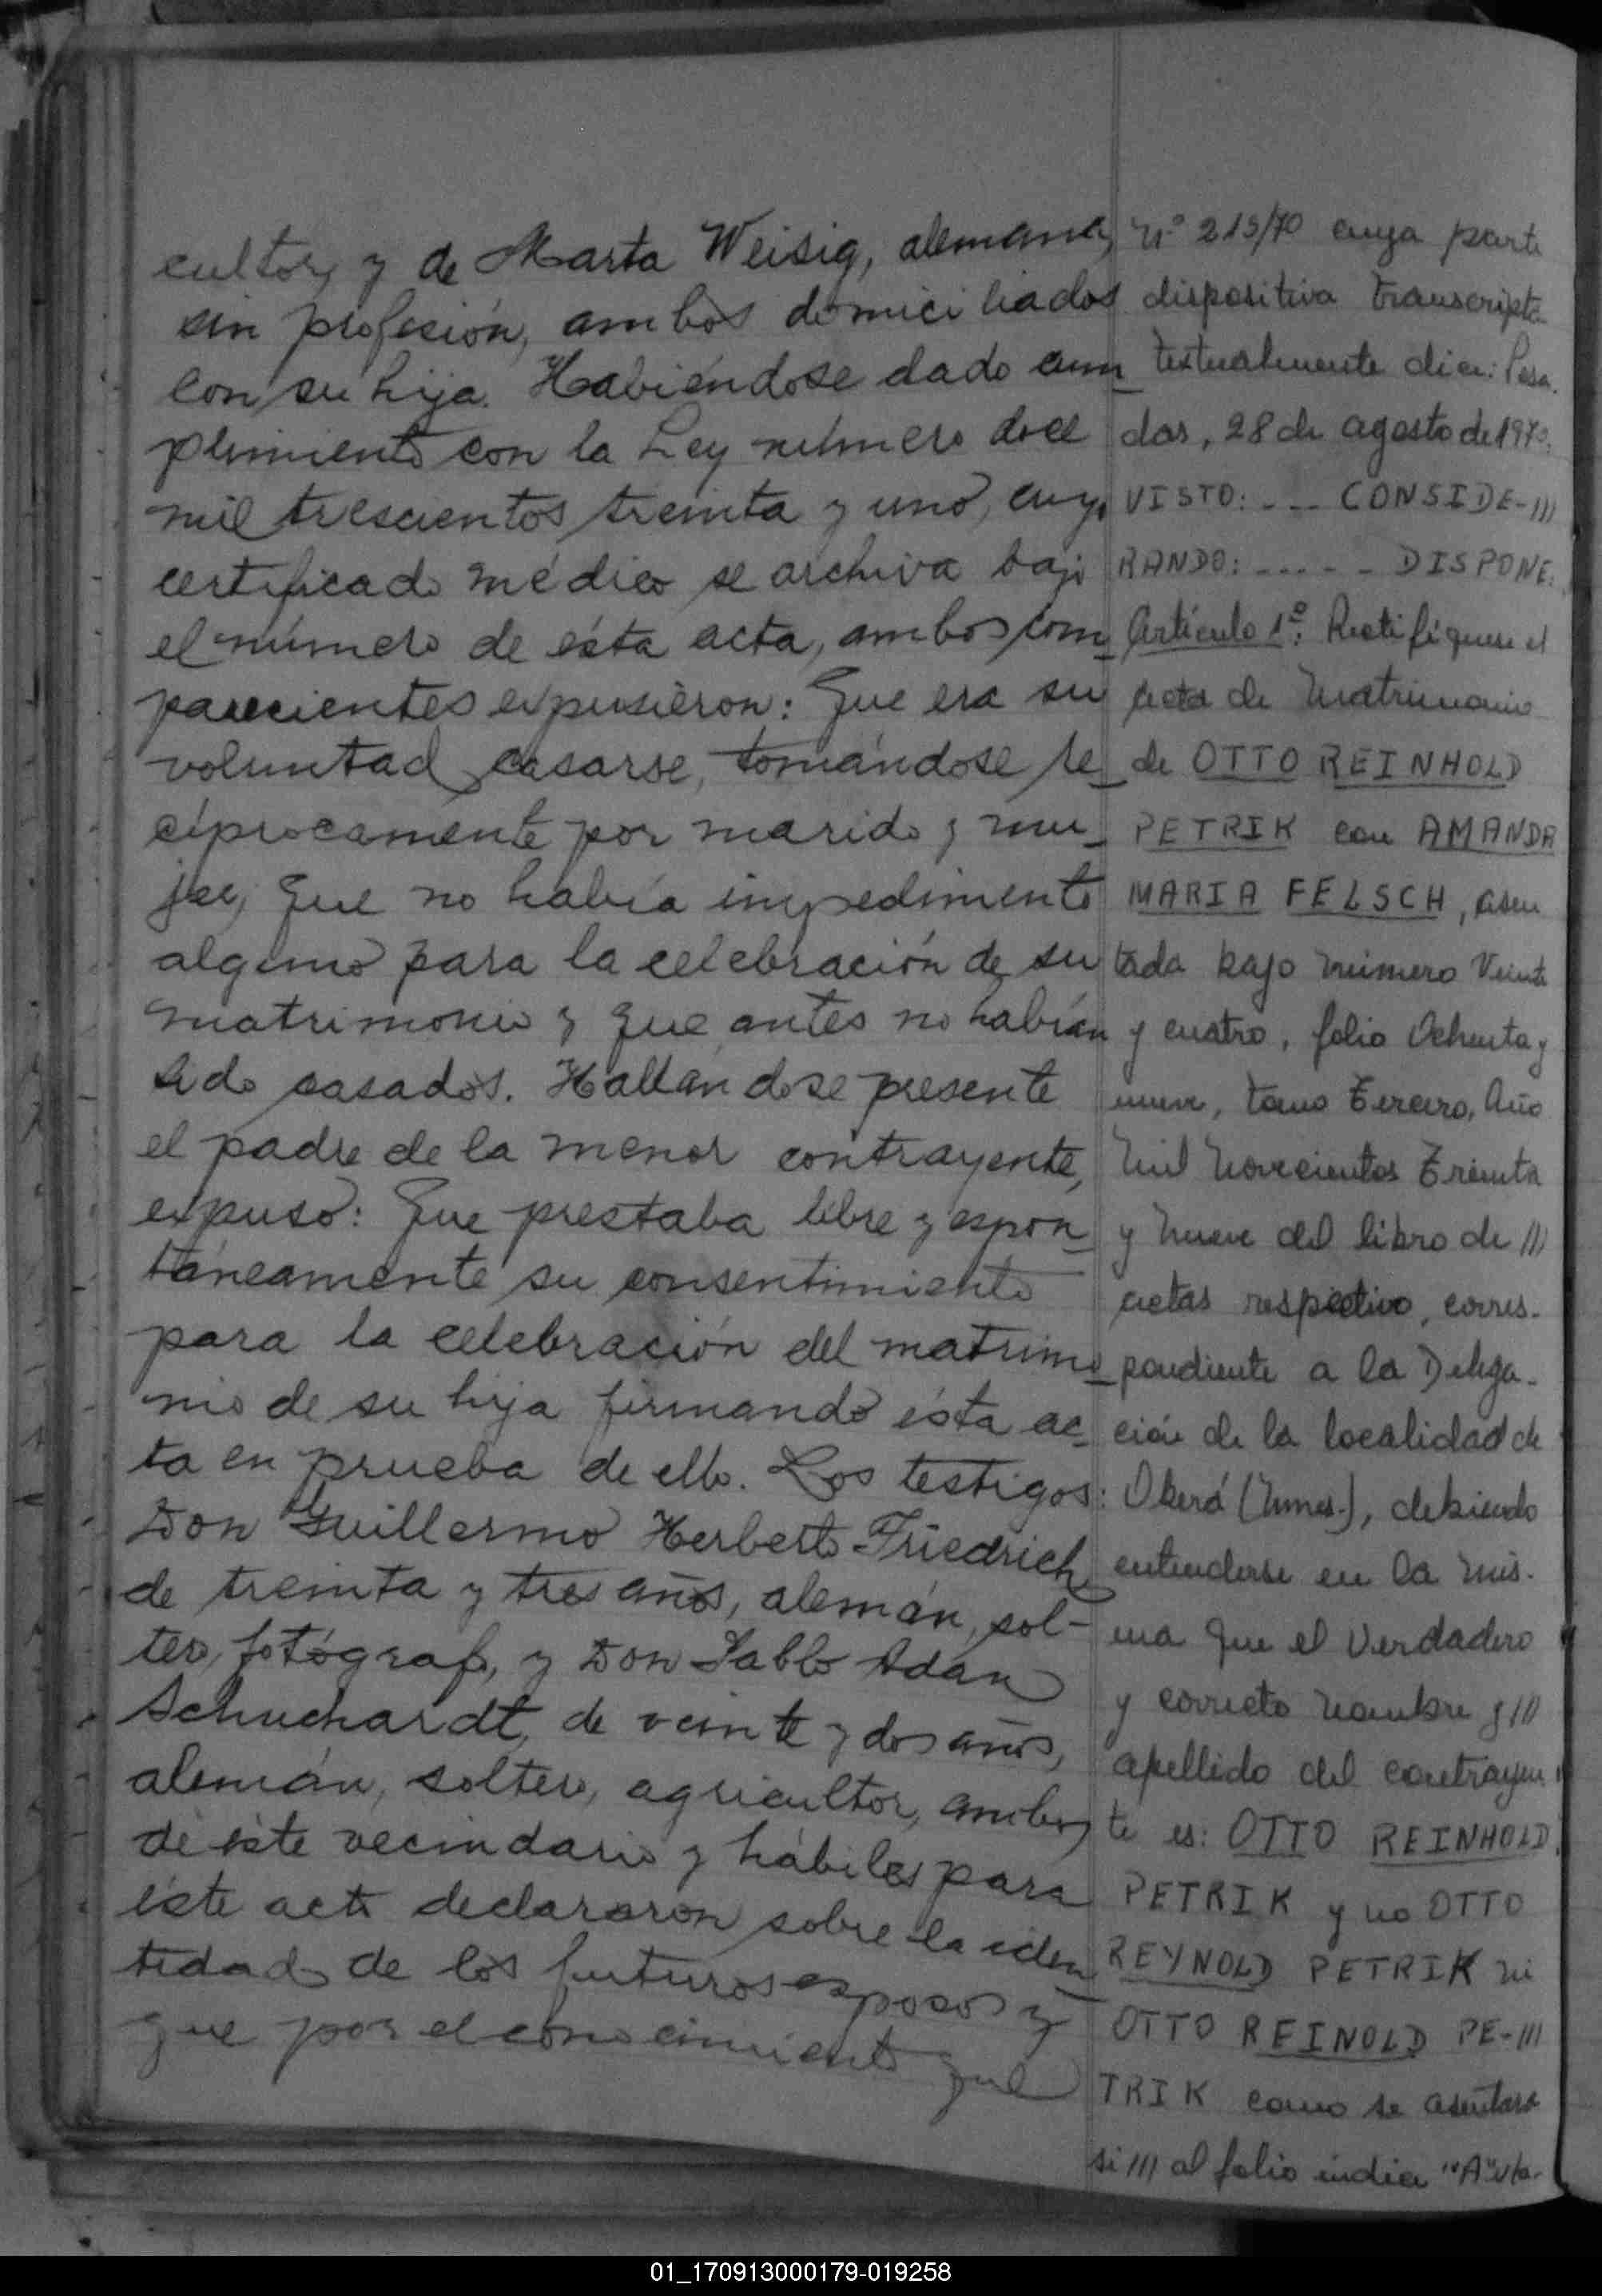 cultor, y de Marta Weisig, alemana,
sin profesión, ambos domiciliados
con su hija. Habiéndose dado cum_
plimiento con la Ley número doce
mil trescientos treinta y uno, cuyo
certificado médico se archiva bajo
el número de ésta acta, ambos com_
parecientes expusieron: Que era su
voluntad casarse, tomándose re_
cíprocamente por marido y mu_
jer, que no había impedimento
alguno para la celebración de su
matrimonio y que antes no habían
sido casados. Hallándose presente
el padre de la menor contrayente,
expuso: Que prestaba libre y espon_
táneamente su consentimiento
para la celebración del matrimo_
nio de su hija firmando ésta ac_
ta en prueba de ello. Los testigos:
Don Guillermo Herberto Friedrich
de treinta y tres años, alemán, sol-
tero, fotógrafo, y Don Pablo Adan
Schuchardt, de veinte y dos años,
alemán, soltero, agricultor, ambos
de éste vecindario y hábiles para
éste acto declararon sobre la iden_
tidad de los futuros esposos y
que por el conocimiento que
Nº 213/70 cuya parte
dispositiva transcripta
textualmente dice: Posa_
das, 28 de agosto de 1970.
VISTO: ... CONSIDE-///
RANDO: ..... DISPONE:
Artículo 1º: Rectifíquese el
acta de Matrimonio
de OTTO REINHOLD
PETRIK con AMANDA
MARIA FELSCH, asen
tada bajo número Veinte
y cuatro, folio Ochenta y
nueve, tomo Tercero, Año
Mil Novecientos Treinta
y Nueve del libro de ///
actas respectivo, corres-
pondiente a la Delega-
ción de la localidad de
Oberá (Mnes.), debiendo
entenderse en la mis-
ma que el Verdadero
y correcto nombre y ///
apellido del contrayen
te es: OTTO REINHOLD
PETRIK y no OTTO
REYNOLD PETRIK ni
OTTO REINOLD PE-///
TRIK como se asentara
si /// al folio indica "A" vta-